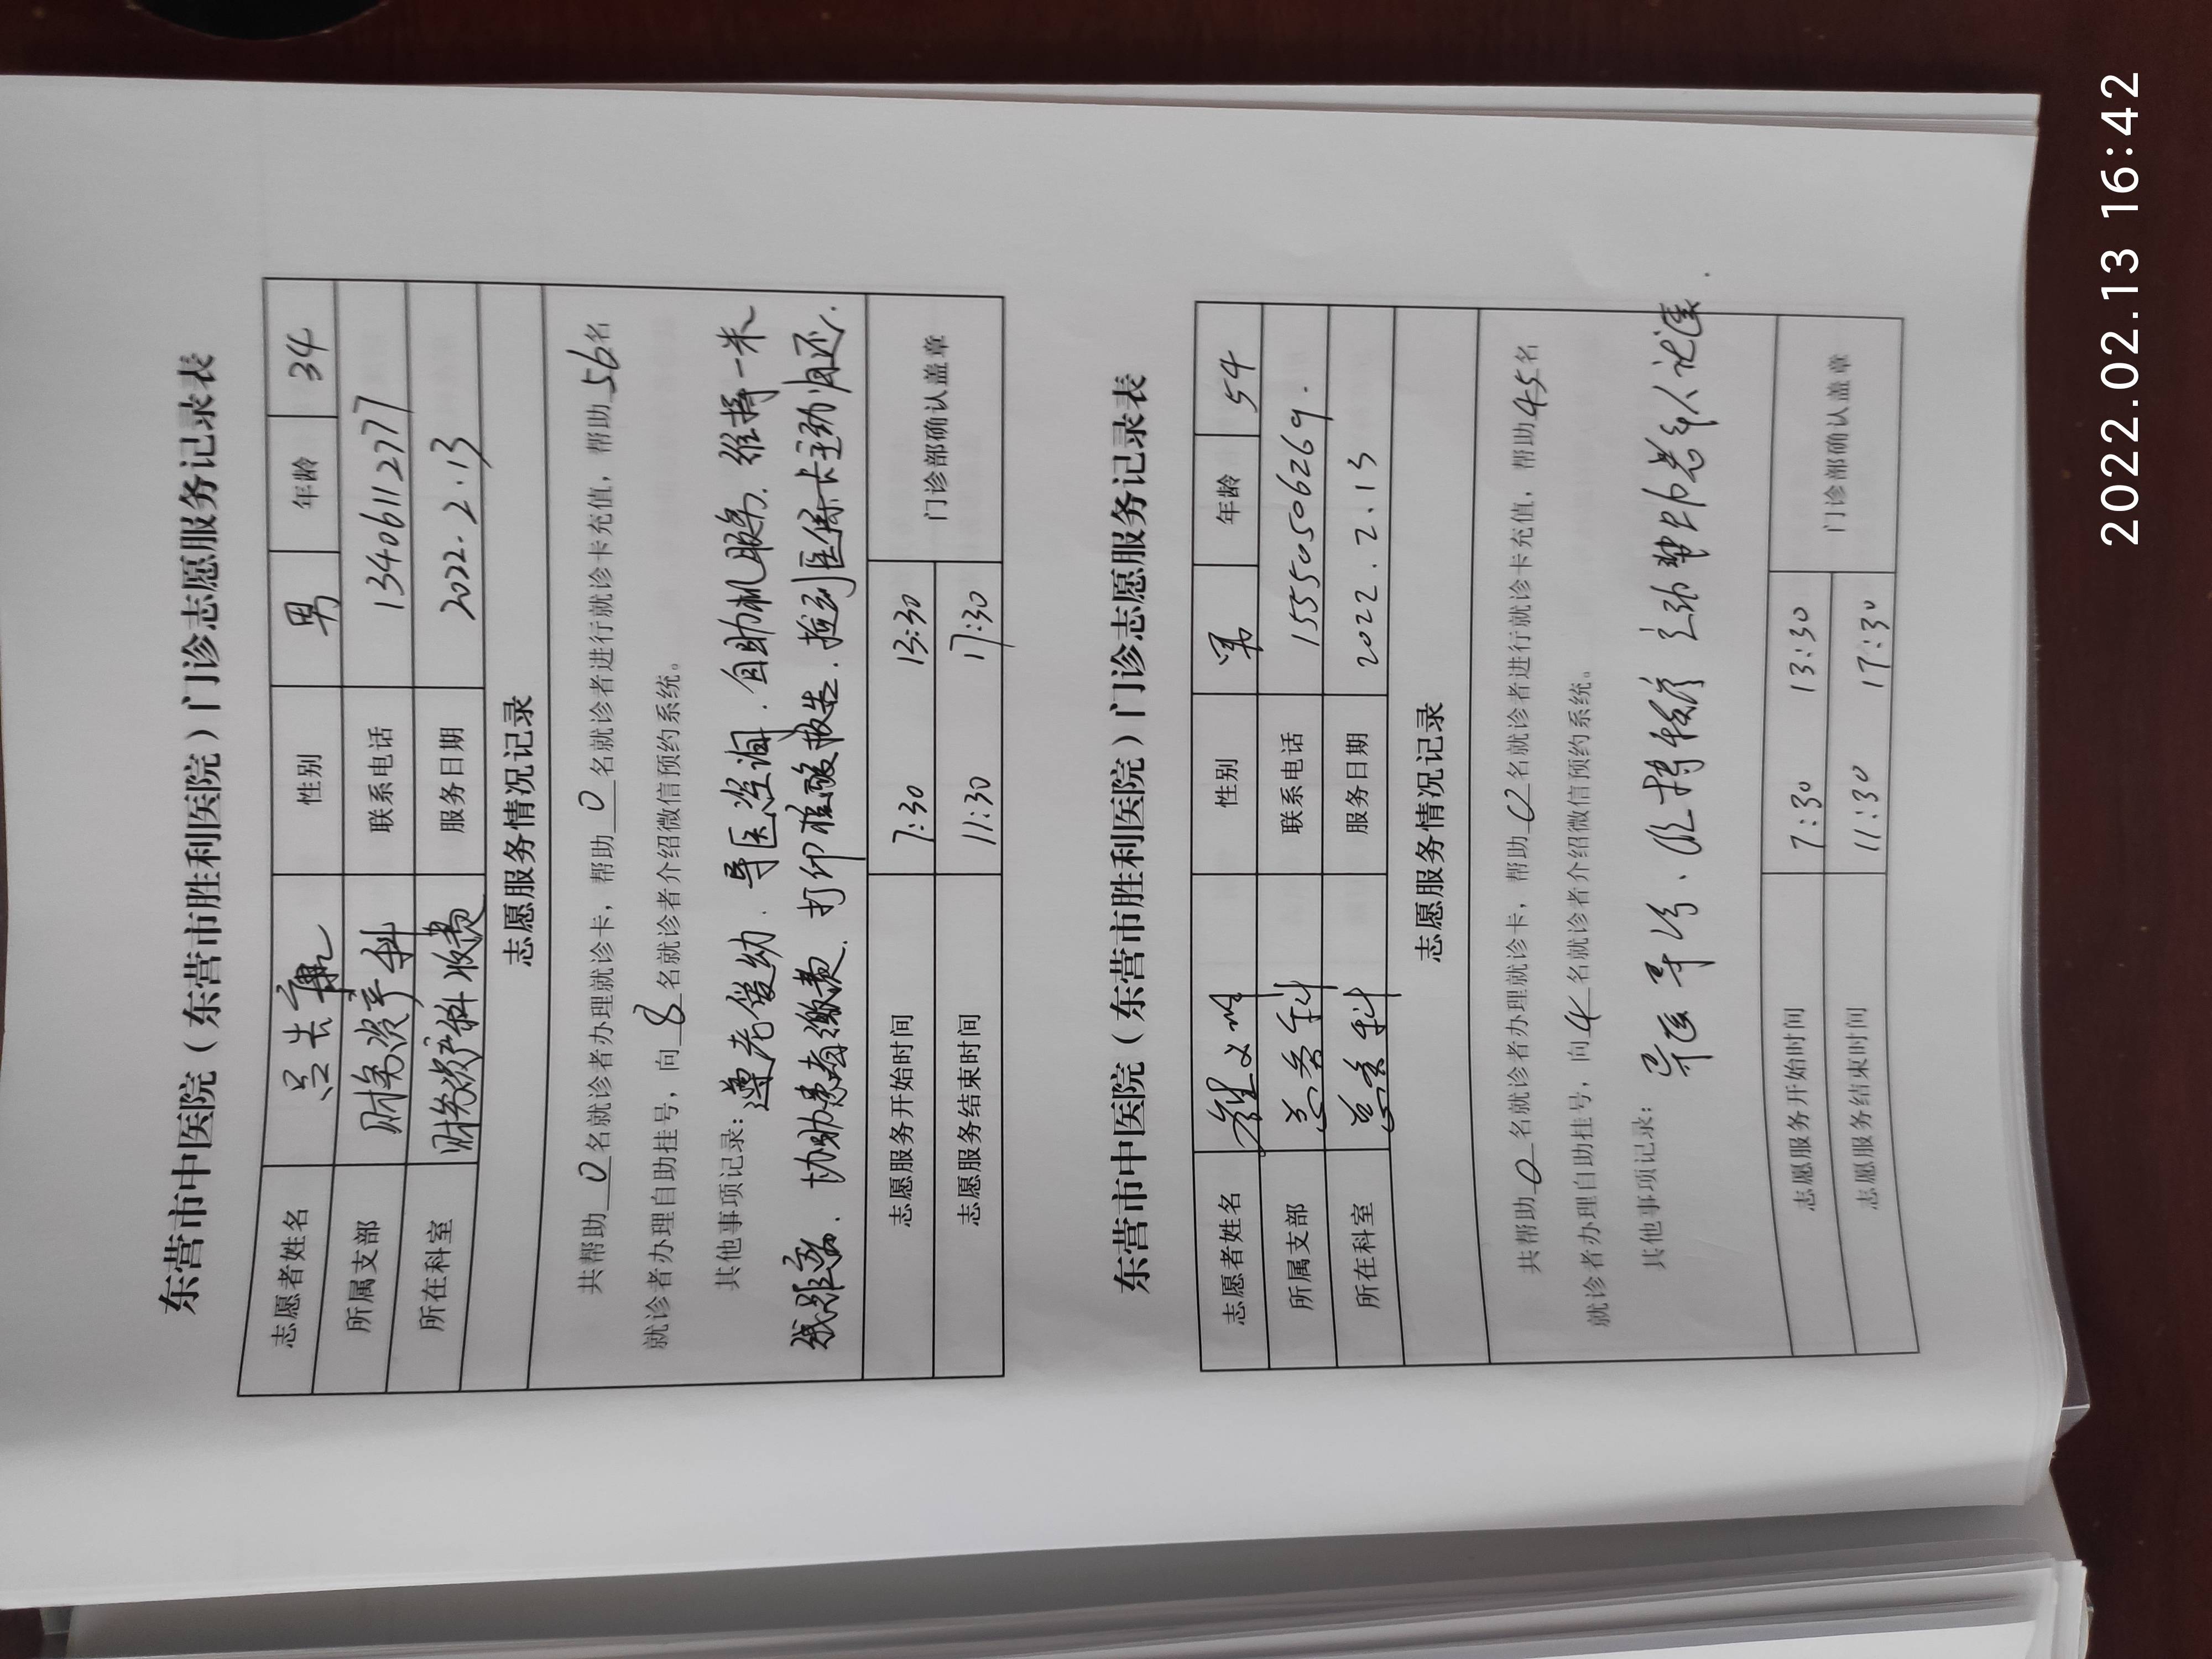 东营市中医院（东营市胜利医院）门诊志愿服务记录表
志愿者姓名 性别 男 年龄 34
所属支部 财务资产科 联系电话 13406112277
所在科室 财务资产科收费 服务日期 2022.2.13
志愿服务情况记录
共帮助0名就诊者办理就诊卡，帮助0名就诊者进行就诊卡充值，帮助56名
就诊者办理自助挂号，向8名就诊者介绍微信预约系统。
其他事项记录：遵老爱幼．导医咨询．自助机服务．维持一米
线距离．协助患者缴费．打印核酸报告．捡到医保卡主动归还．
志愿服务开始时间 7:30 13:30 门诊部确认盖章
志愿服务结束时间 11:30 17:30
东营市中医院（东营市胜利医院）门诊志愿服务记录表
志愿者姓名 性别 男 年龄 54
所属支部 总务科 联系电话 15550506269.
所在科室 总务科 服务日期 2022.2.13
志愿服务情况记录
共帮助0名就诊者办理就诊卡，帮助0名就诊者进行就诊卡充值，帮助45名
就诊者办理自助挂号，向4名就诊者介绍微信预约系统。
其他事项记录： 导医导诊、帮助老年人
志愿服务开始时间 7:30 13:30 门诊部确认盖章
志愿服务结束时间 11:30 17:30
2022.02.13 16:42